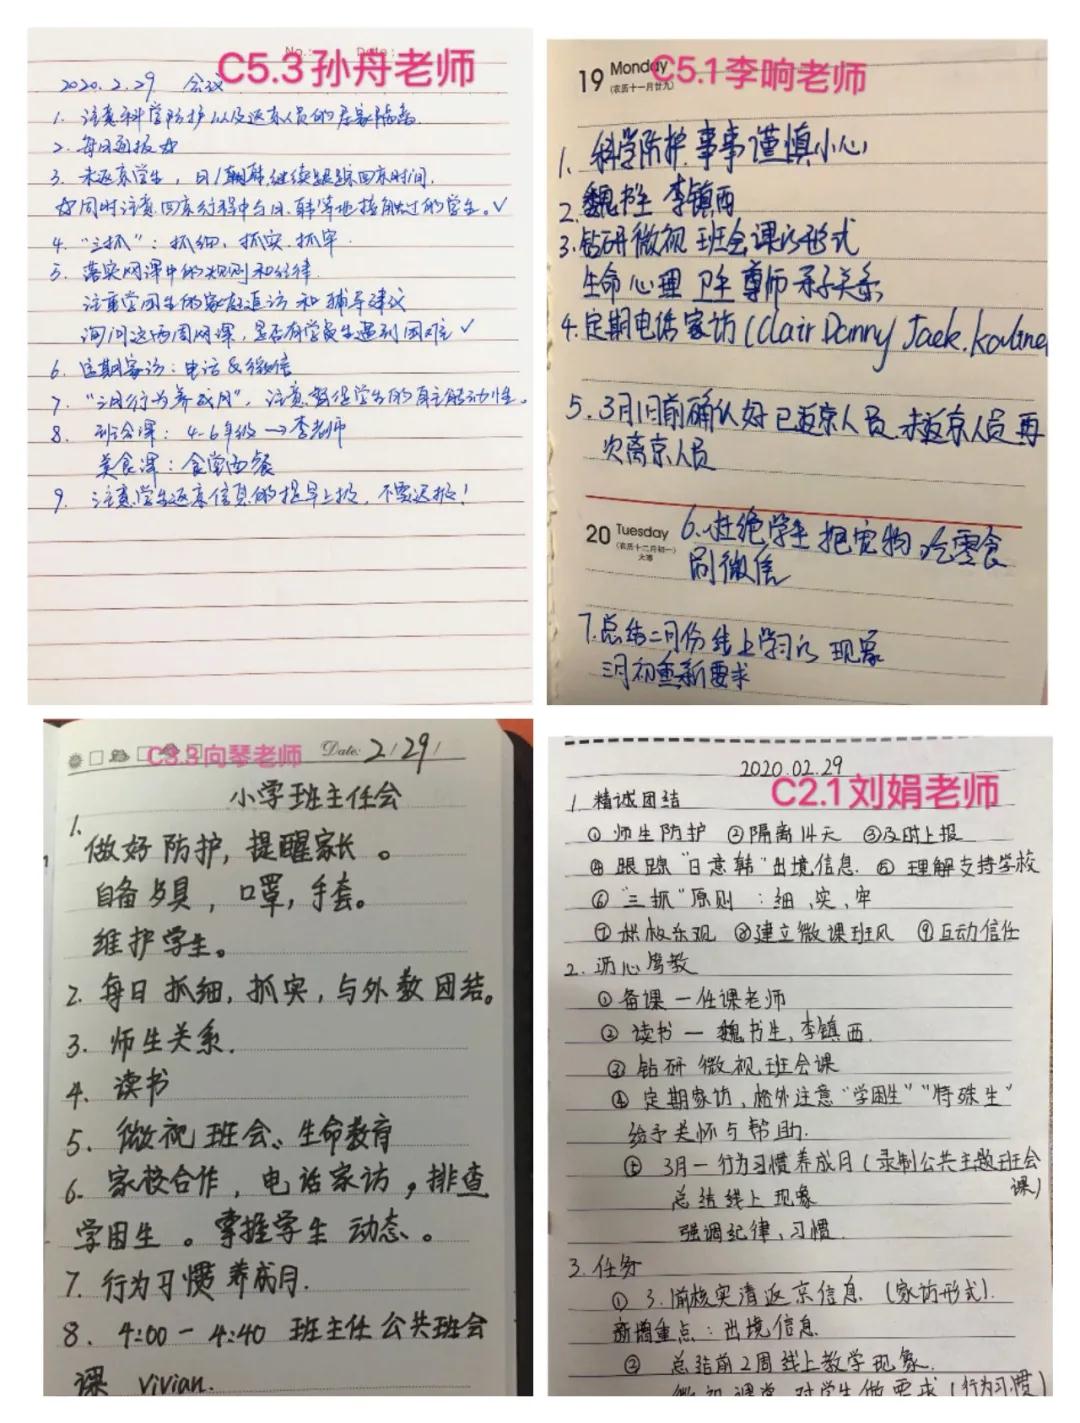 C5.3孙舟老师
No.: Date:
2020.2.29 会议
1. 注意科学防护以及返京人员的居家隔离.
2. 每日通报
3. 未返京学生，日/韩继续跟踪回京时间.
同时注意回京行程中与日.韩等地接触过的学生。✓
4. "三抓"：抓细、抓实.抓牢.
5. 落实网课中的规则和纪律.
注重学困生的家庭追访和辅导建议
询问这两周网课，是否有学生遇到困难✓
6. 定期家访：电话&微信
7. "三月行为养成月"，注意督促学生的自主能动性。
8. 班会课：4-6年级→李老师
美食课：食堂西餐
9. 注意学生返京信息的提早上报，不要迟报！
C5.1李晌老师
19 Monday
(农历十一月廿九)
1. 科学防护.事事谨慎小心
2. 魏书生 李镇西
3. 钻研微视 班会课的形式
生命 心理 卫生 尊师 亲子关系
4. 定期电话家访 (Clair Danny Jack.
5. 3月1日前确认好 已返京人员 未返京人员 再
次离京人员
20 Tuesday
(农历十二月初一)
大寒
6. 杜绝学生 把宠物 吃零食
刷微信
7. 总结二月份线上学习的 现象
三月初重新要求
C3.3向琴老师
Date: 2/29/
小学班主任会
1.
做好防护，提醒家长。
自备餐具，口罩，手套。
维护学生。
2. 每日抓细，抓实，与外教团结。
3. 师生关系.
4. 读书
5. 微视班会、生命教育
6. 家校合作，电话家访，排查
学困生。掌握学生 动态。
7. 行为习惯养成月.
8. 4:00-4:40 班主任公共班会
课 vivian.
2020.02.29
C2.1刘娟老师
1. 精诚团结
① 师生防护 ②隔离14天 ③及时上报
④ 跟踪"日意韩"出境信息. ⑤ 理解支持学校
⑥ "三抓"原则 ：细、实、牢
⑦ 积极乐观 ⑧建立微课班风 ⑨互动信任
2. 沥心写教
① 备课 — 任课老师
② 读书 — 魏书生,李镇西.
③ 钻研 微视,班会课
④ 定期家访，格外注意"学困生""特殊生"
给予关怀与帮助.
⑤ 3月—行为习惯养成月(录制公共主题班会
课)
总结线上现象
强调纪律,习惯.
3. 任务
① 3.1前核实清返京信息. (家访形式).
新增重点：出境信息.
② 总结前2周线上教学现象.
微视课堂 对学生做要求 (行为习惯)